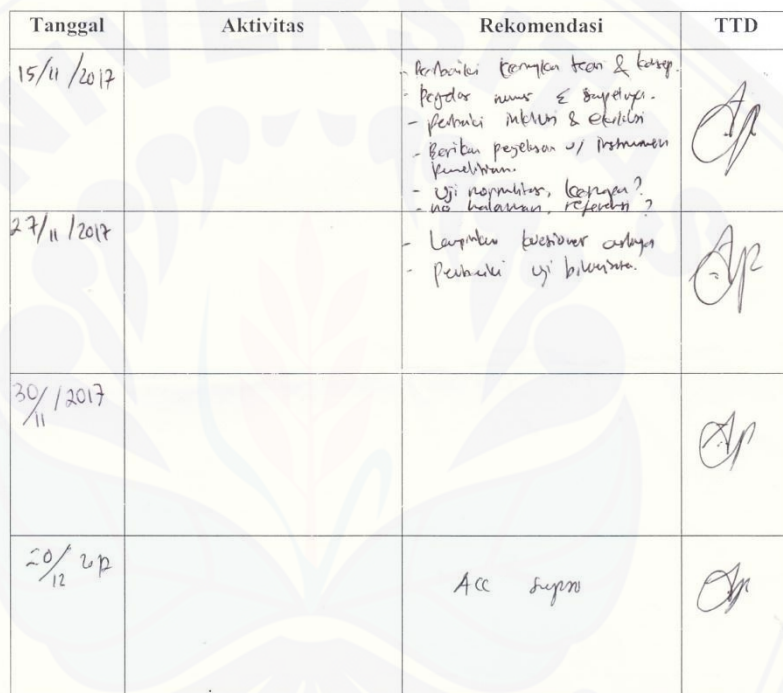 Tanggal Aktivitas Rekomendasi TTD
15/11/2017
- Perbaiki kerangka teori & konsep.
- perbaiki inklusi & eksklusi
- Berikan penjelasan u/ instrumen
penelitian.
- Uji normalitas,
- no halaman, referensi?
27/11/2017
- Lampirkan kuesioner
- Perbaiki uji bivariat.
30/11/2017
20/12
ACC